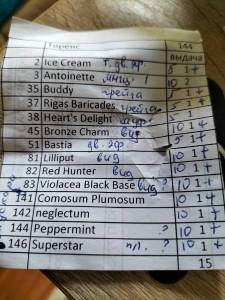 Торенс 144
выдача
2 Ice Cream 5 1+
3 Antoinette 10 2
35 Buddy грейга 5 1+
37 Rigas Baricades грейга 5 1+
38 Heart's Delight 5 1
45 Bronze Charm вид 10 4
51 Bastia 5 1+
81 Lilliput вид 10 1+
82 Red Hunter вид 10 1+
83 Violacea Black Base вид 10 1+
141 Comosum Plumosum 10 1+
142 neglectum 10 1+
144 Peppermint ? 10 1+
146 Superstar ? 10 1+
15